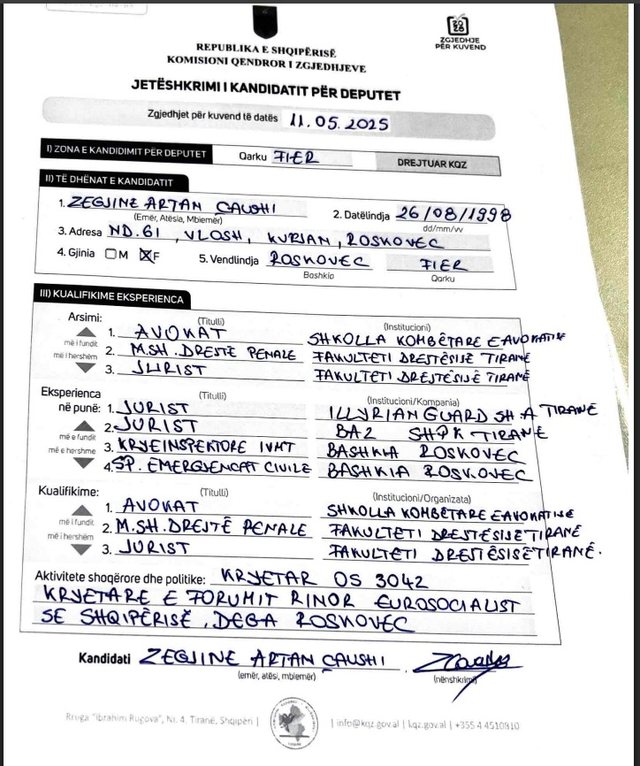 2025
ZGJEDHJE
PËR KUVEND
REPUBLIKA E SHQIPËRISË
KOMISIONI QENDROR I ZGJEDHJEVE
JETËSHKRIMI I KANDIDATIT PËR DEPUTET
Zgjedhjet për kuvend të datës 11.05.2025
I) ZONA E KANDIDIMIT PËR DEPUTET Qarku FIER DREJTUAR KQZ
II) TË DHËNAT E KANDIDATIT
1. ZEGJINE ARTAN ÇAUSHI 2. Datëlindja 26/08/1998
(Emër, Atësia, Mbiemër) dd/mm/vv
3. Adresa ND.61, VLOSH, KURJAN, ROSKOVEC
4. Gjinia M F 5. Vendlindja ROSKOVEC FIER
Bashkia Qarku
III) KUALIFIKIME EKSPERIENCA
Arsimi: (Titulli) (Institucioni)
1. AVOKAT SHKOLLA KOMBËTARE E AVOKATISË
më i fundit
2. M.SH. DREJTË PENALE FAKULTETI DREJTËSISË TIRANË
më i hershëm
3. JURIST FAKULTETI DREJTËSISË TIRANË
Eksperienca (Titulli) (Institucioni/Kompania)
në punë: 1. JURIST ILLYRIAN GUARD SH.A TIRANË
2. JURIST BA2 SHPK TIRANË
më e fundit
3. KRYEINSPEKTORE IVMT BASHKIA ROSKOVEC
më e hershme
4. SP. EMERGJENCAT CIVILE BASHKIA ROSKOVEC
Kualifikime: (Titulli) (Institucioni/Organizata)
1. AVOKAT SHKOLLA KOMBËTARE E AVOKATISË
më i fundit
2. M.SH. DREJTË PENALE FAKULTETI DREJTËSISË TIRANË
më i hershëm
3. JURIST FAKULTETI DREJTËSISË TIRANË.
Aktivitete shoqërore dhe politike: KRYETAR OS 3042
KRYETARE E FORUMIT RINOR EUROSOCIALIST
SË SHQIPËRISË, DEGA ROSKOVEC
Kandidati ZEGJINE ARTAN ÇAUSHI
(emër, atësi, mbiemër) (nënshkrimi)
Rruga "Ibrahim Rugova", Nr. 4, Tiranë, Shqipëri | | info@kqz.gov.al | kqz.gov.al | +355 4 4510810